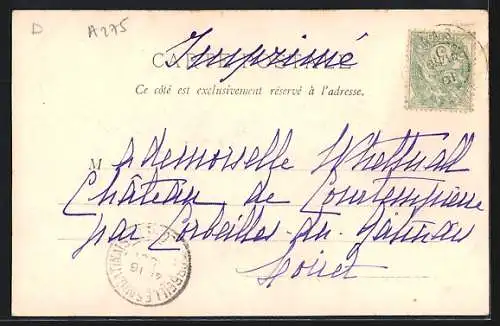 D A275
Imprimé
CARTE POSTALE
Ce côté est exclusivement réservé à l'adresse.
Mademoiselle
Château de Courtempierre
par Corbeilles-du-Gâtinais
Loiret